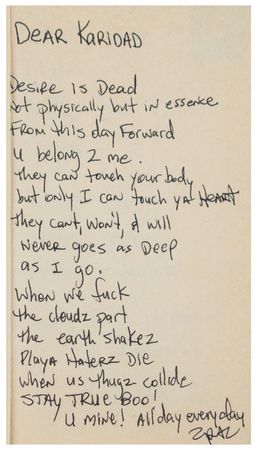 DEAR KARIDAD
Desire is Dead
Not physically but in essence
From this day Forward
u belong 2 me.
they can touch your body
but only I can touch ya HEART
they cant, won't, & will
never goes as Deep
as I go.
When we fuck
the cloudz part
the earth shakez
Playa Haterz Die
when us thugz collide
STAY TRUE BOO!
U mine! All day everyday
2PAC